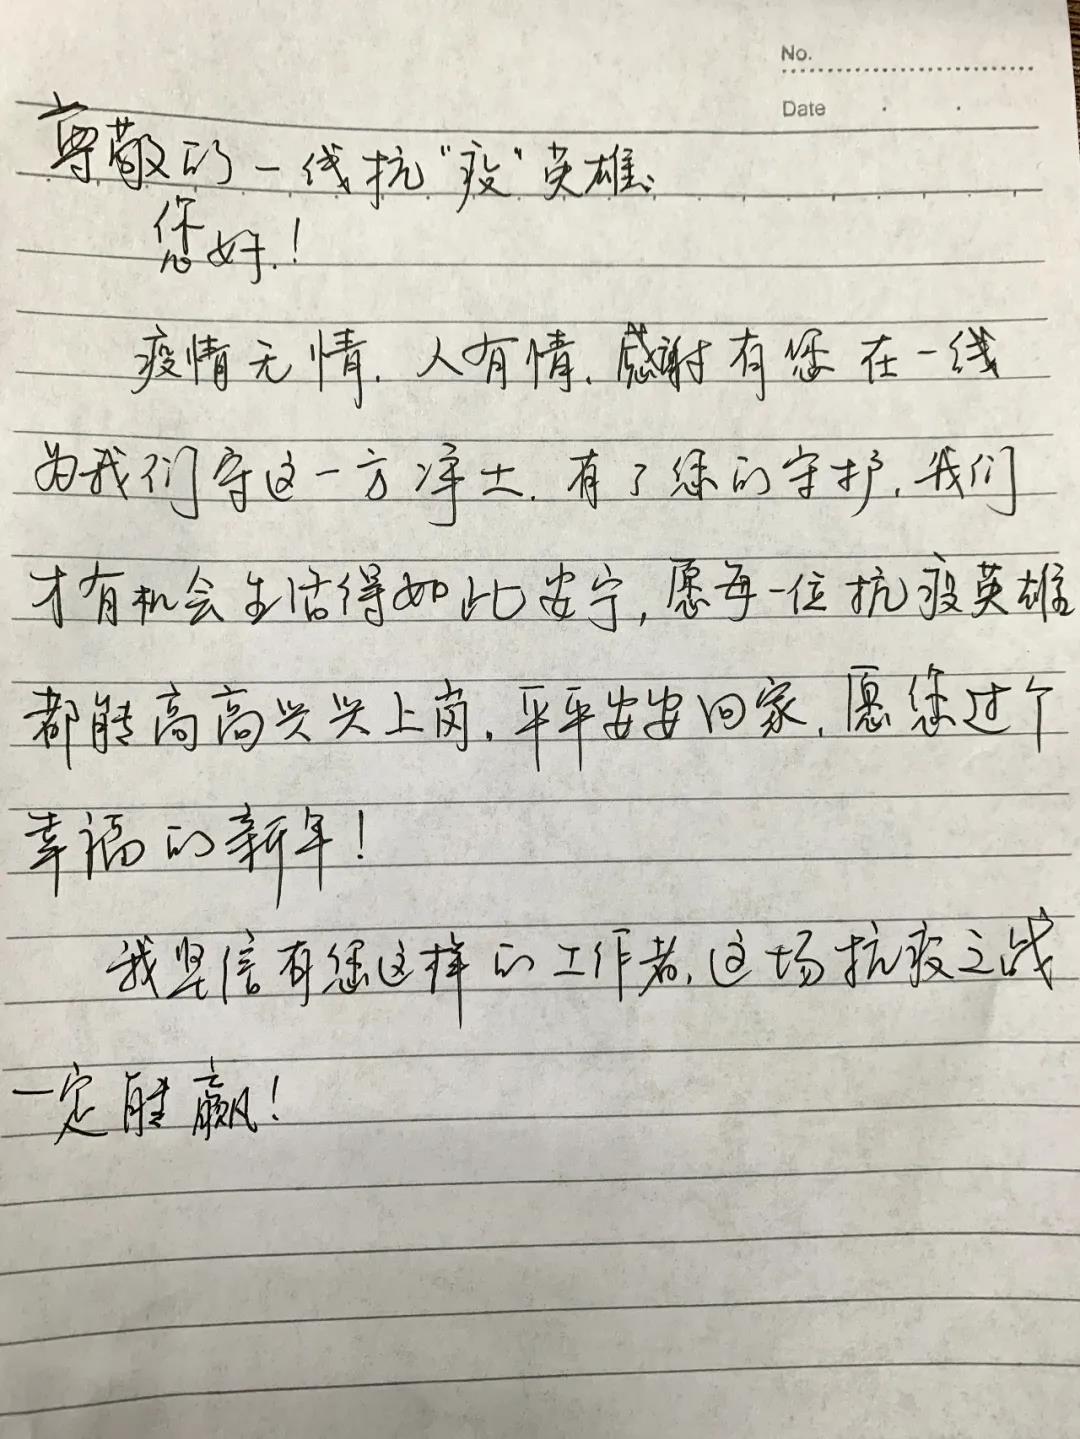 No.
Date
尊敬的一线抗"疫"英雄:
您好!
疫情无情,人有情,感谢有您在一线
为我们守这一方净土.有了您的守护,我们
才有机会生活得如此安宁,愿每一位抗疫英雄
都能高高兴兴上岗,平平安安回家,愿您过个
幸福的新年!
我坚信有您这样的工作者,这场抗疫之战
一定能赢!